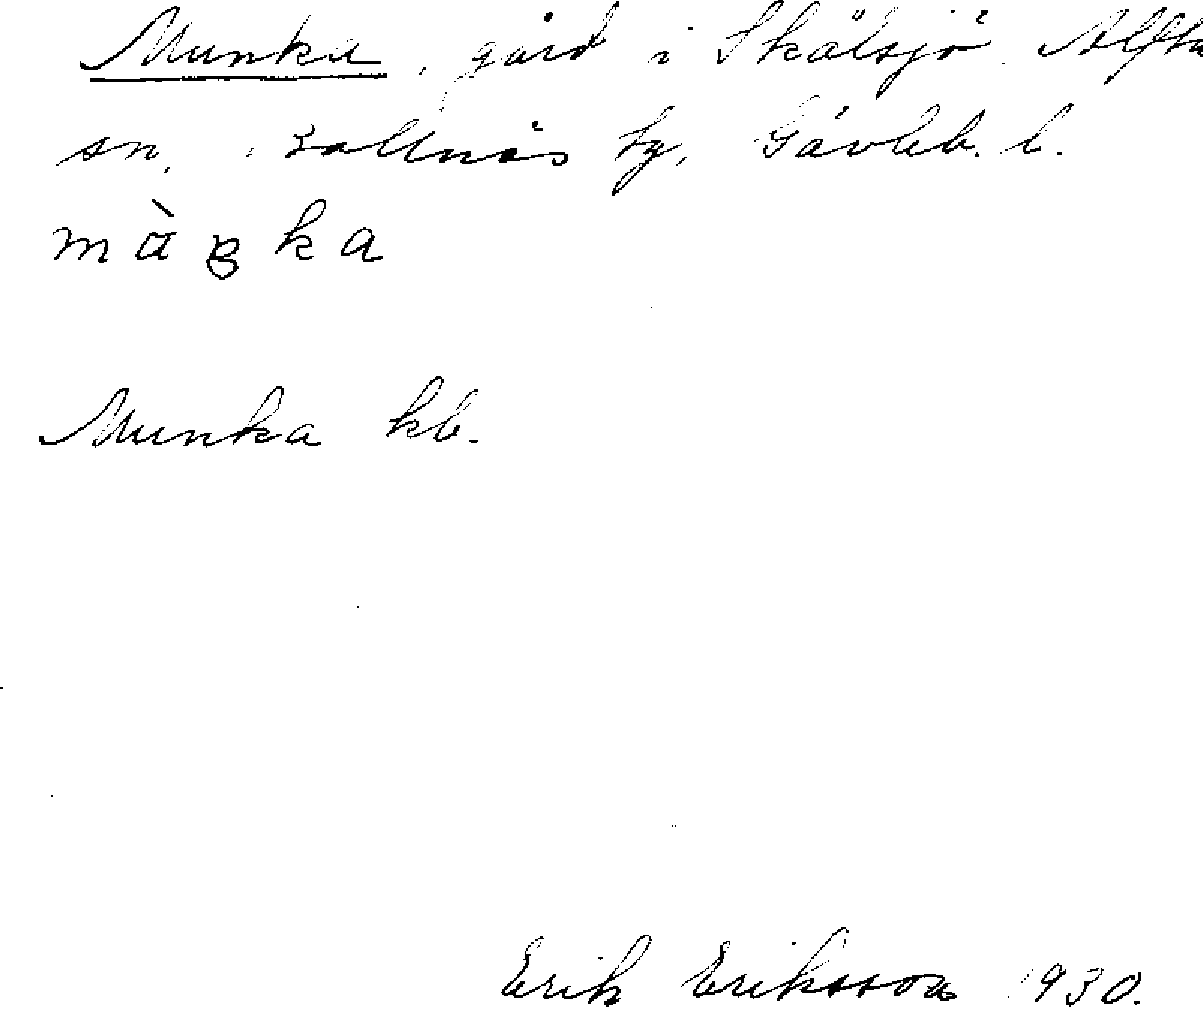 Munka, gård i Skålsjö Alfta
sn, Bollnäs tg, Gävleb. l.
Munka kb.
Erik Eriksson 1930.